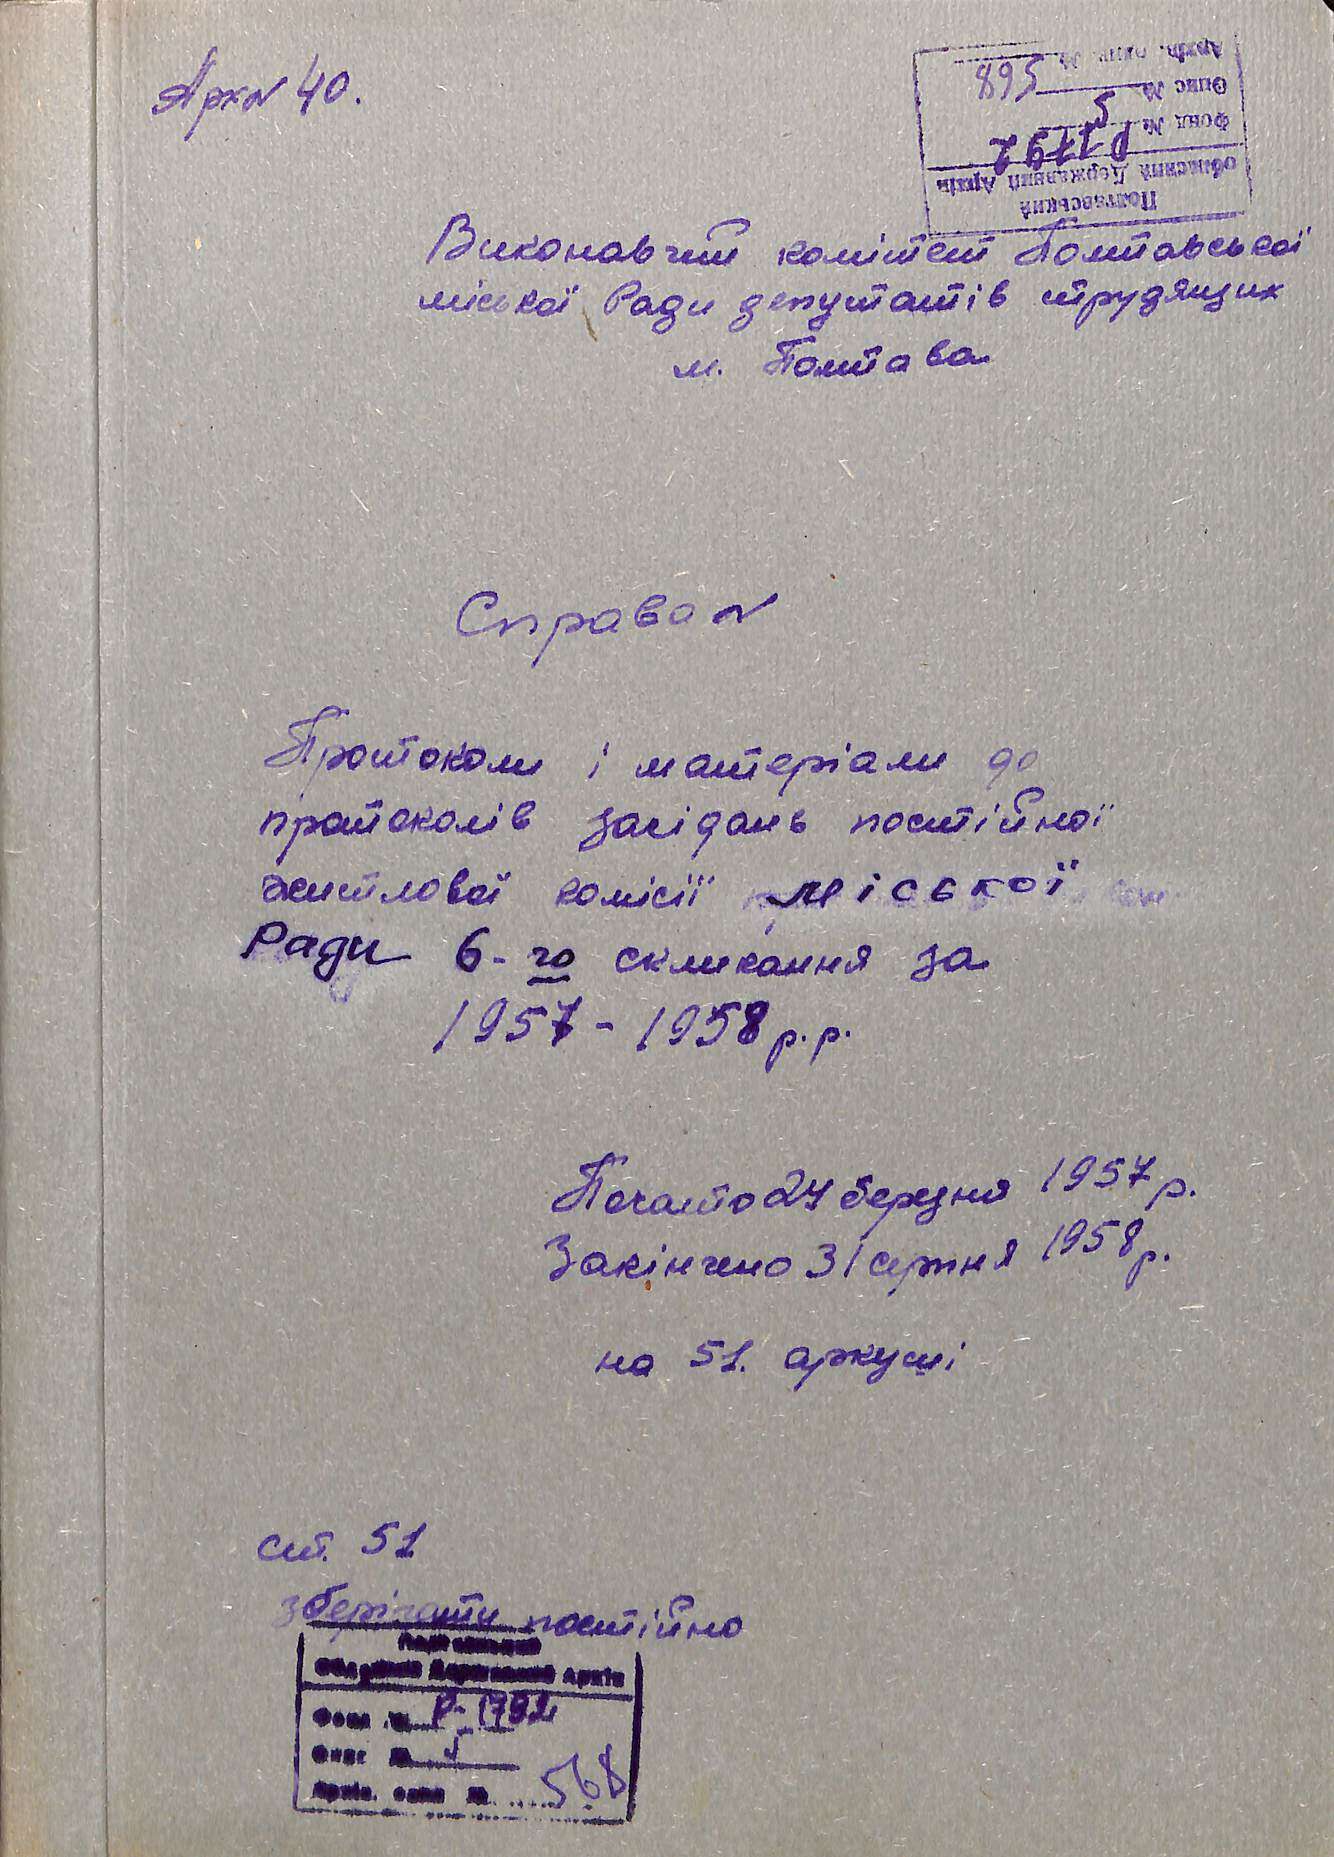 Арх № 40.
Полтавський
обласний Державний Архів
Фонд № Р1792
Опис № 5
Архів. один. № 568
Виконавчий комітет Полтавської
міської Ради депутатів трудящих
м. Полтава
Справа №
Протоколи і матеріали до
протоколів засідань постійної
житлової комісії міської
Ради 6-го скликання за
1957-1958 р.р.
Почато 27 березня 1957 р.
Закінчено 31 серпня 1958 р.
на 51. аркуші
ст. 51
зберігати постійно
Полтавський
Обласний Державний Архів
Фонд № Р-1792
Опис № 5
Архів. один № 568